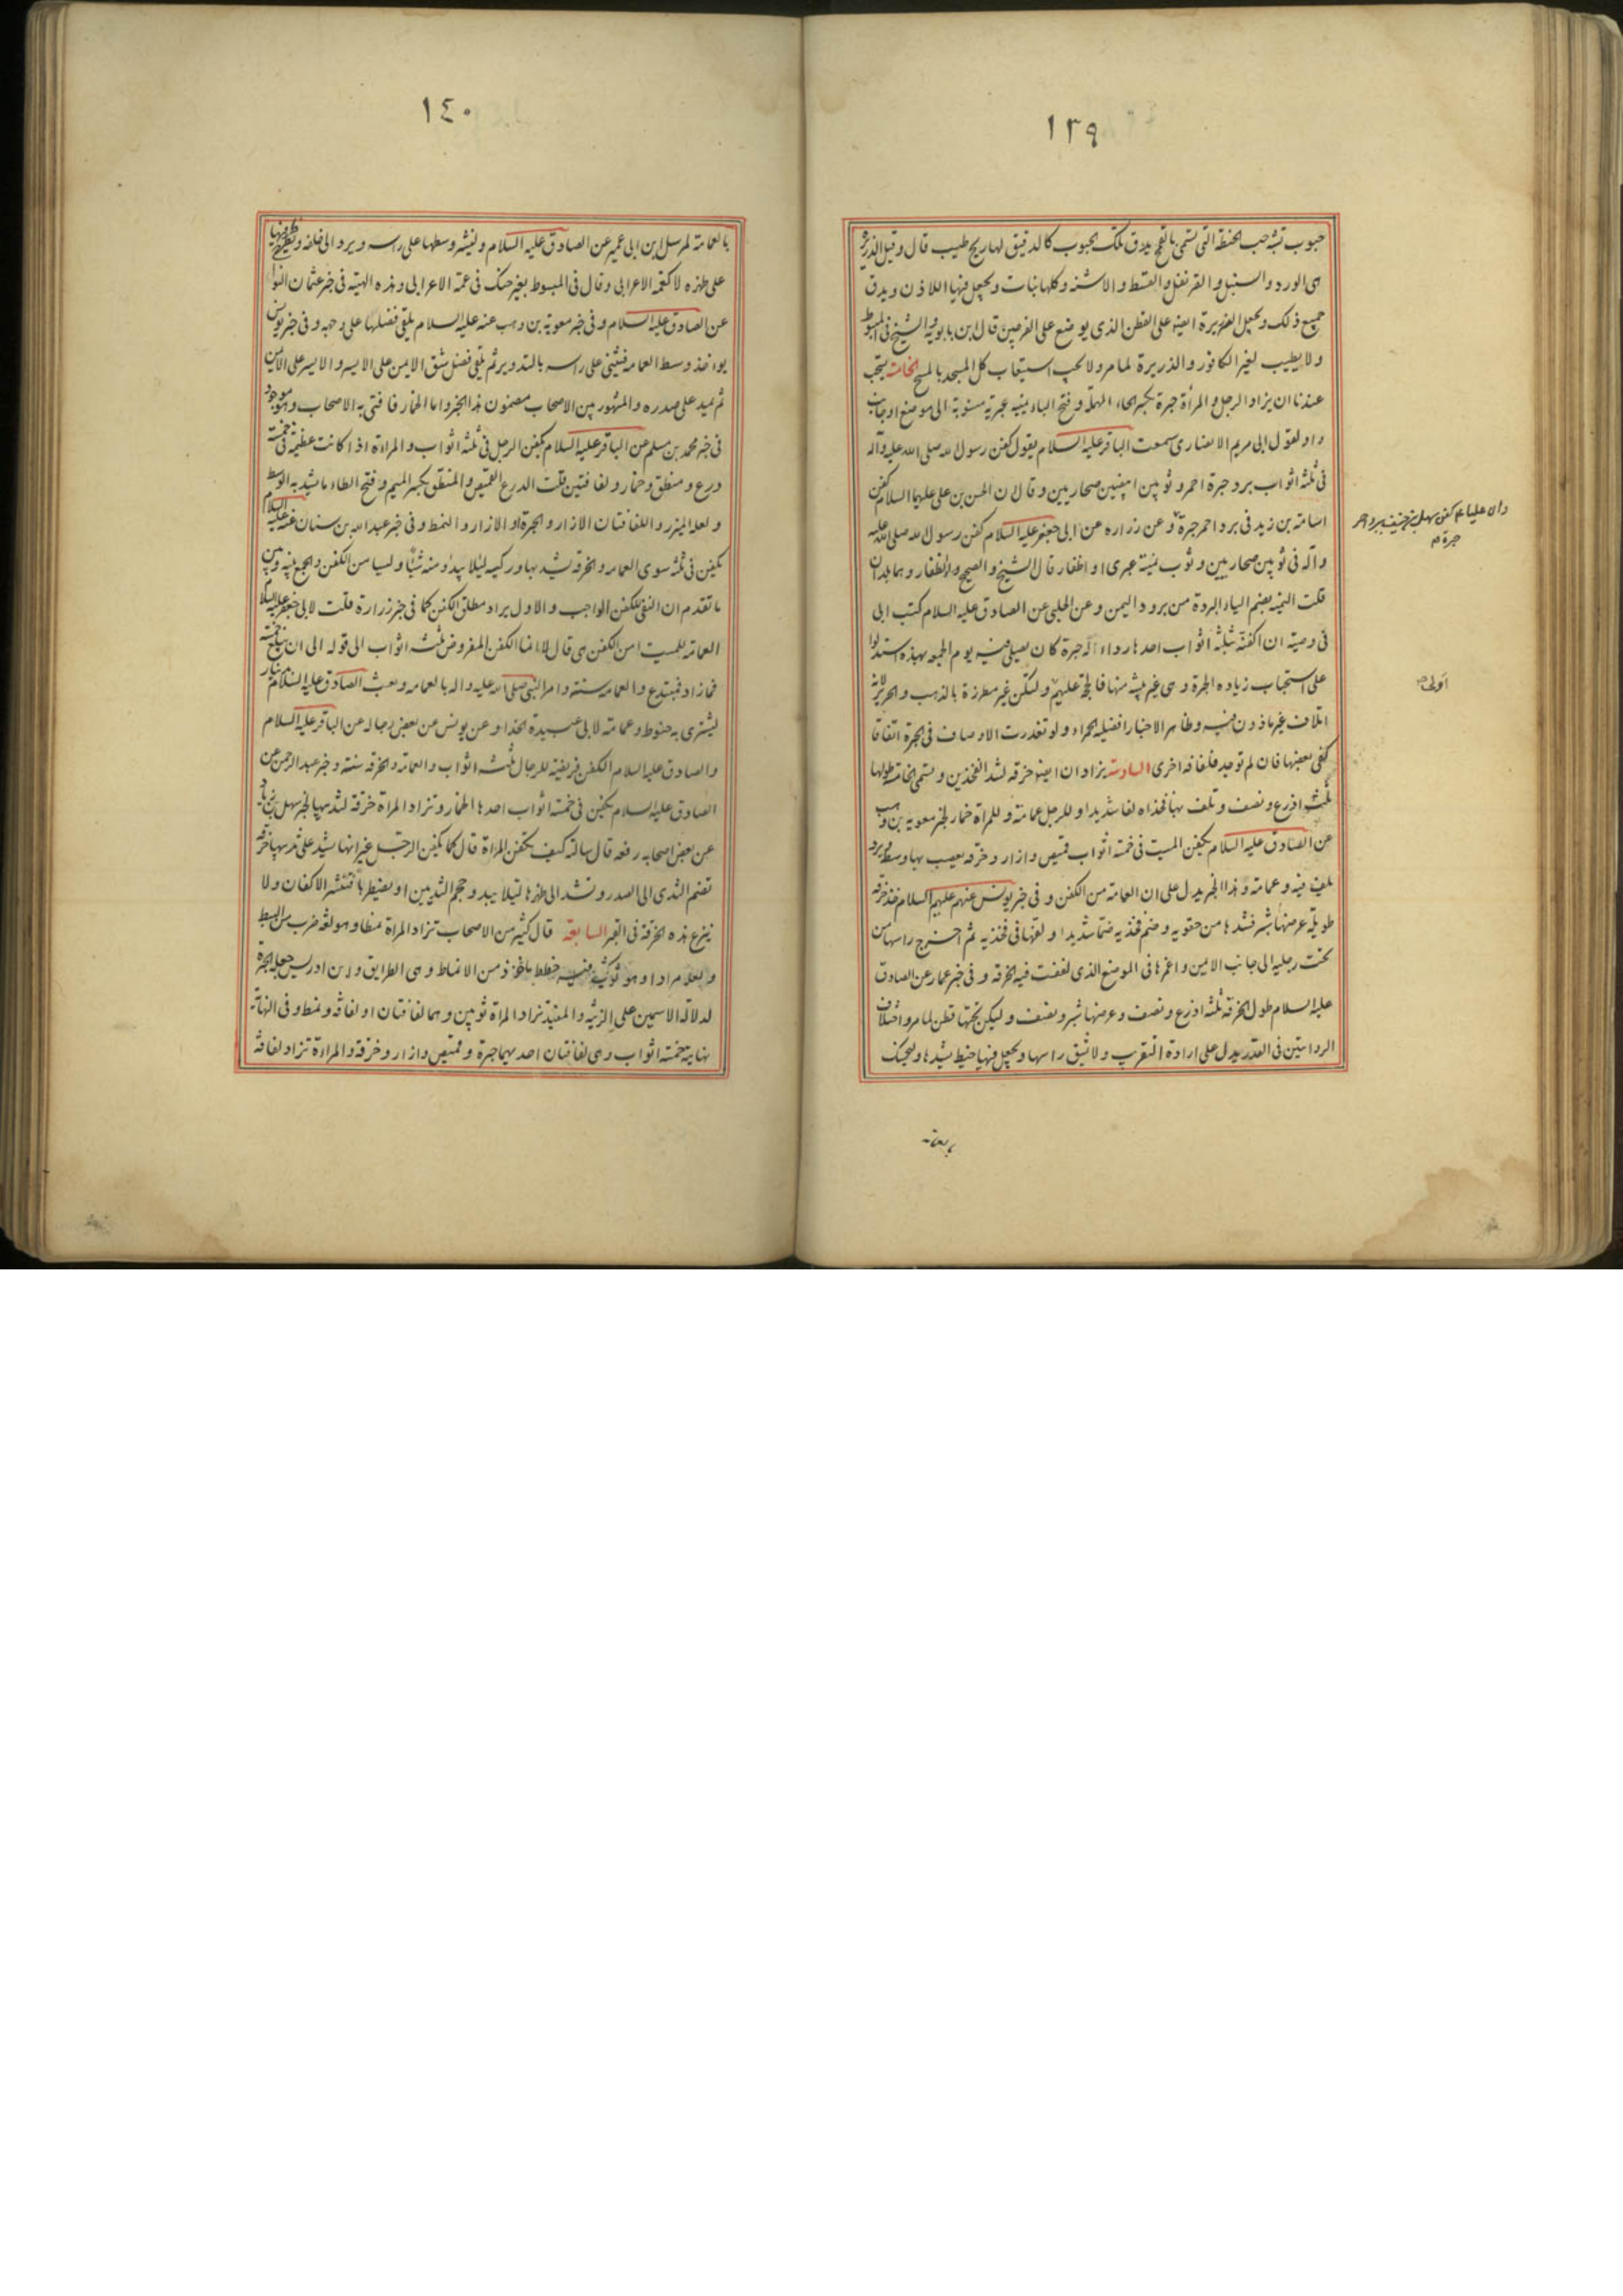 ١٣٩
حبوب تشبه حب الحنطة التى تسمى بالقمح يدق تلك الحبوب كالدقيق لها ريح طيب قال وقيل الذريرة
هى الورد والسنبل والقرنفل والقسط والاشنه وكلها نبات ويجعل فيها اللاذن ويدق
جميع ذلك ويجعل الذريرة ايضا على القطن الذى يوضع على الفرجين قال ابن بابويه والشيخ فى المبسوط
ولا يطيب بغير الكافور والذريرة لما مر ولا يجب استيعاب كل المسجد بالمسح الخامسة يستحب
عندنا ان يزاد الرجل والمرأة حبرة بكسر الحاء المهملة وفتح الباء يمنيه عبرية منسوبة الى موضع او جانب
واد لقول ابى مريم الانصارى سمعت الباقر عليه السلام يقول كفن رسول الله صلى الله عليه وآله
فى ثلثة اثواب برد حبرة احمر وثوبين ابيضين صحاريين وقال ان الحسن بن على عليهما السلام كفن
اسامة بن زيد فى برد احمر حبرة وعن زراره عن ابى جعفر عليه السلام كفن رسول الله صلى الله عليه
وآله فى ثوبين صحاريين وثوب يمنية عبرى او اظفار قال الشيخ والصحيح والاظفار وهما بلدان
قلت اليمنه بضم الياء البردة من برود اليمن وعن الحلبى عن الصادق عليه السلام كتب ابى
فى وصيته ان اكفنه بثلثة اثواب احدها رداء له حبرة كان يصلى فيه يوم الجمعه بهذه استدلوا
على استحباب زياده الحبرة وهى غير مثبتة منها فالحجة عليهم ولتكن غير مطرزة بالذهب والحرير لانه
اتلاف غير ماذون فيه وظاهر الاخبار افضليه الحمراء ولو تعذرت الاوصاف فى الحبرة اتفاقا
كفى بعضها فان لم توجد فلفافه اخرى السادسة يزادان ايضا خرقه لشد الفخذين وتسمى الخامسة طولها
ثلثة اذرع ونصف وتلف بها فخذاه لفا شديدا وللرجل عمامة وللمرأة خمار لخبر معوية بن وهب
عن الصادق عليه السلام يكفن الميت فى خمسة اثواب قميص وازار وخرقه يعصب بها وسطه وبرد
يلف فيه وعمامة وهذا الخبر يدل على ان العمامة من الكفن وفى خبر يونس عنهم عليهم السلام خذ خرقه
طويلة عرضها شبر فشدها من حقويه وضم فخذيه ضما شديدا ولفها فى فخذيه ثم اخرج راسها من
تحت رجليه الى جانب الايمن واغرزها فى الموضع الذى لففت فيه الخرقه وفى خبر عمار عن الصادق
عليه السلام طول الخرقه ثلثة اذرع ونصف وعرضها شبر ونصف وليكن تحتها قطن لما مر واختلاف
الروايتين فى القدر يدل على ارادة التقريب ولا يشق راسها ويجعل فيها خيط يشدها وليحنك
وان عليا ع كفن سهل بن حنيف ببرد احمر
حبرة م
اولى
١٤٠
بالعمامة لمرسل ابن ابى عمير عن الصادق عليه السلام ولينشر وسطها على راسه ويرد الى خلفه ويطرح طرفيها
على ظهره لا كعمه الاعرابى وقال فى المبسوط بغير حنك فى عمة الاعرابى وهذه الهيئة فى خبر عثمان النوا
عن الصادق عليه السلام وفى خبر معوية بن وهب عنه عليه السلام يلقى فضلها على وجهه وفى خبر يونس
يواخذ وسط العمامه فيثنى على راسه بالتدوير ثم يلقى فضل شق الايمن على الايسر والايسر على الايمن
ثم يمد على صدره والمشهور بين الاصحاب مضمون هذا الخبر واما الخمار فافتى به الاصحاب وهو موجود
فى خبر محمد بن مسلم عن الباقر عليه السلام يكفن الرجل فى ثلثة اثواب والمراة اذا كانت عظيمة فى خمسة
درع ومنطق وخمار ولفافتين قلت الدرع القميص والمنطق بكسر الميم وفتح الطاء ما يشد به الوسط
ولعله الميزر واللفافتان الازار والحبرة او الازار والنمط وفى خبر عبد الله بن سنان عنه عليه السلام
يكفن فى ثلثة سوى العمامه والخرقه يشد بها وركيه ليلا يبدو منه شئ وليسا من الكفن والجمع بينه وبين
ما تقدم ان النفى للكفن الواجب والاول يراد مطلق الكفن كما فى خبر زرارة قلت لابى جعفر عليه السلام
العمامه للميت امن الكفن هى قال لا انما الكفن المفروض ثلثه اثواب الى قوله الى ان يبلغ خمسة
فما زاد فمبتدع والعمامه سنة وامر النبى صلى الله عليه واله بالعمامه وبعث الصادق عليه السلام بدينار
ليشترى به حنوط وعمامة لابى عبيدة الحذاء وعن يونس عن بعض رجاله عن الباقر عليه السلام
والصادق عليه السلام الكفن فريضة للرجال ثلثه اثواب والعمامه والخرقه سنة وخبر عبد الرحمن عن
الصادق عليه السلام يكفن فى خمسة اثواب احدها الخمار وتزاد المراة خرقة لثدييها لخبر سهل بن زياد
عن بعض اصحابه رفعه قال سالته كيف تكفن المراة قال كما يكفن الرجل غير انها يشد على ثدييها خرقة
تضم الثدى الى الصدر وتشد الى ظهرها ليلا يبدو حجم الثديين او يضطربا فتنتشر الاكفان ولا
ينزع هذه الخرقة فى القبر السابعة قال كثير من الاصحاب تزاد المراة نمطا وهو لغة ضرب من البسط
ولعله مرادا وهو ثوب فيه خطط ماخوذ من الانماط وهى الطرايق وابن ادريس جعله الحبرة
لدلالة الاسمين على الزينة والمفيد تزاد المراة ثوبين وهما لفافتان او لفافة ونمط وفى النهاية
نهايته خمسة اثواب وهى لفافتان احديهما حبرة وقميص وازار وخرقة والمراة تزاد لفافة